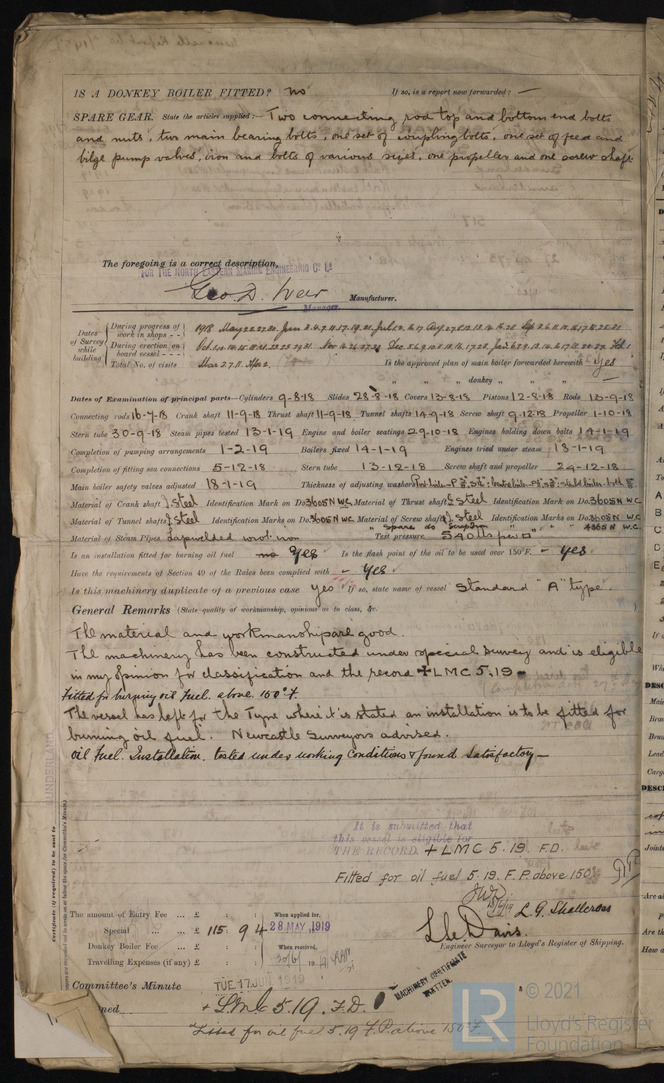 IS A DONKEY BOILER FITTED? no If so, is a report now forwarded? —
SPARE GEAR. State the articles supplied:— Two connecting rod top and bottom end bolts
and nuts, two main bearing bolts, one set of coupling bolts, one set of feed and
bilge pump valves, iron and bolts of various sizes, one propeller and one screw shaft
The foregoing is a correct description,
FOR THE NORTH EASTERN MARINE ENGINEERING Co Ld
Geo. D. Weir Manufacturer.
Manager.
Dates of Survey while building
During progress of work in shops - -
1918 May
During erection on board vessel - - -
Total No. of visits
Is the approved plan of main boiler forwarded herewith Yes
" " " donkey " " " —
Dates of Examination of principal parts—Cylinders 9-8-18 Slides 28-8-18 Covers 13-8-18 Pistons 12-8-18 Rods 13-9-18
Connecting rods 16-7-18 Crank shaft 11-9-18 Thrust shaft 11-9-18 Tunnel shafts 14-9-18 Screw shaft 9-12-18 Propeller 1-10-18
Stern tube 30-9-18 Steam pipes tested 13-1-19 Engine and boiler seatings 29-10-18 Engines holding down bolts 14-1-19
Completion of pumping arrangements 1-2-19 Boilers fixed 14-1-19 Engines tried under steam 18-1-19
Completion of fitting sea connections 5-12-18 Stern tube 13-12-18 Screw shaft and propeller 24-12-18
Main boiler safety valves adjusted 18-1-19 Thickness of adjusting washers
Material of Crank shaft I Steel Identification Mark on Do. 3605N WC Material of Thrust shaft I Steel Identification Mark on Do. 3605N WC
Material of Tunnel shafts I Steel Identification Marks on Do. 3605N WC Material of Screw shafts I Steel Identification Marks on Do. 3605N WC
" Spare do 4868N W.C.
Material of Steam Pipes Lapwelded wrot iron Test pressure 540 lbs p w □"
Is an installation fitted for burning oil fuel no Yes Is the flash point of the oil to be used over 150°F. - Yes
Have the requirements of Section 49 of the Rules been complied with - Yes
Is this machinery duplicate of a previous case Yes If so, state name of vessel Standard "A" type.
General Remarks (State quality of workmanship, opinions as to class, &c.
The material and workmanship are good.
The machinery has been constructed under special survey and is eligible
in my opinion for classification and the record + LMC 5.19
Fitted for burning oil fuel. above. 150°F.
The vessel has left for the Tyne where it is stated an installation is to be fitted for
burning oil fuel. Newcastle Surveyors advised.
Oil Fuel. Installation. tested under working Conditions & found Satisfactory—
It is submitted that
this vessel is eligible for
THE RECORD. + LMC 5.19. F.D.
Fitted for oil fuel 5.19. F.P. above 150°F
L. G. Shallcross
Engineer Surveyor to Lloyd's Register of Shipping.
The amount of Entry Fee ... £ : :
Special ... ... £ 115 . 9 4
Donkey Boiler Fee ... £ : :
Travelling Expenses (if any) £ : :
When applied for,
28 MAY 1919
When received,
30/6/19
Committee's Minute TUE 17 JUN 1919
+ LMC 5.19. F.D.
Fitted for oil fuel 5.19 F.P. above 150°F.
MACHINERY CERTIFICATE WRITTEN.
SUNDERLAND
Certificate (if required) to be sent to
LR
© 2021
Lloyd's Register
Foundation